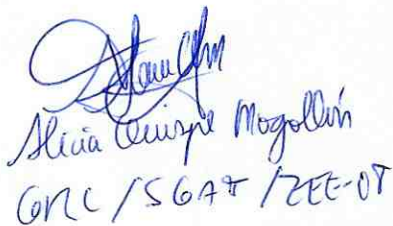 Alicia Quispe Mogollón
GRC/SGAT/ZEE-OT